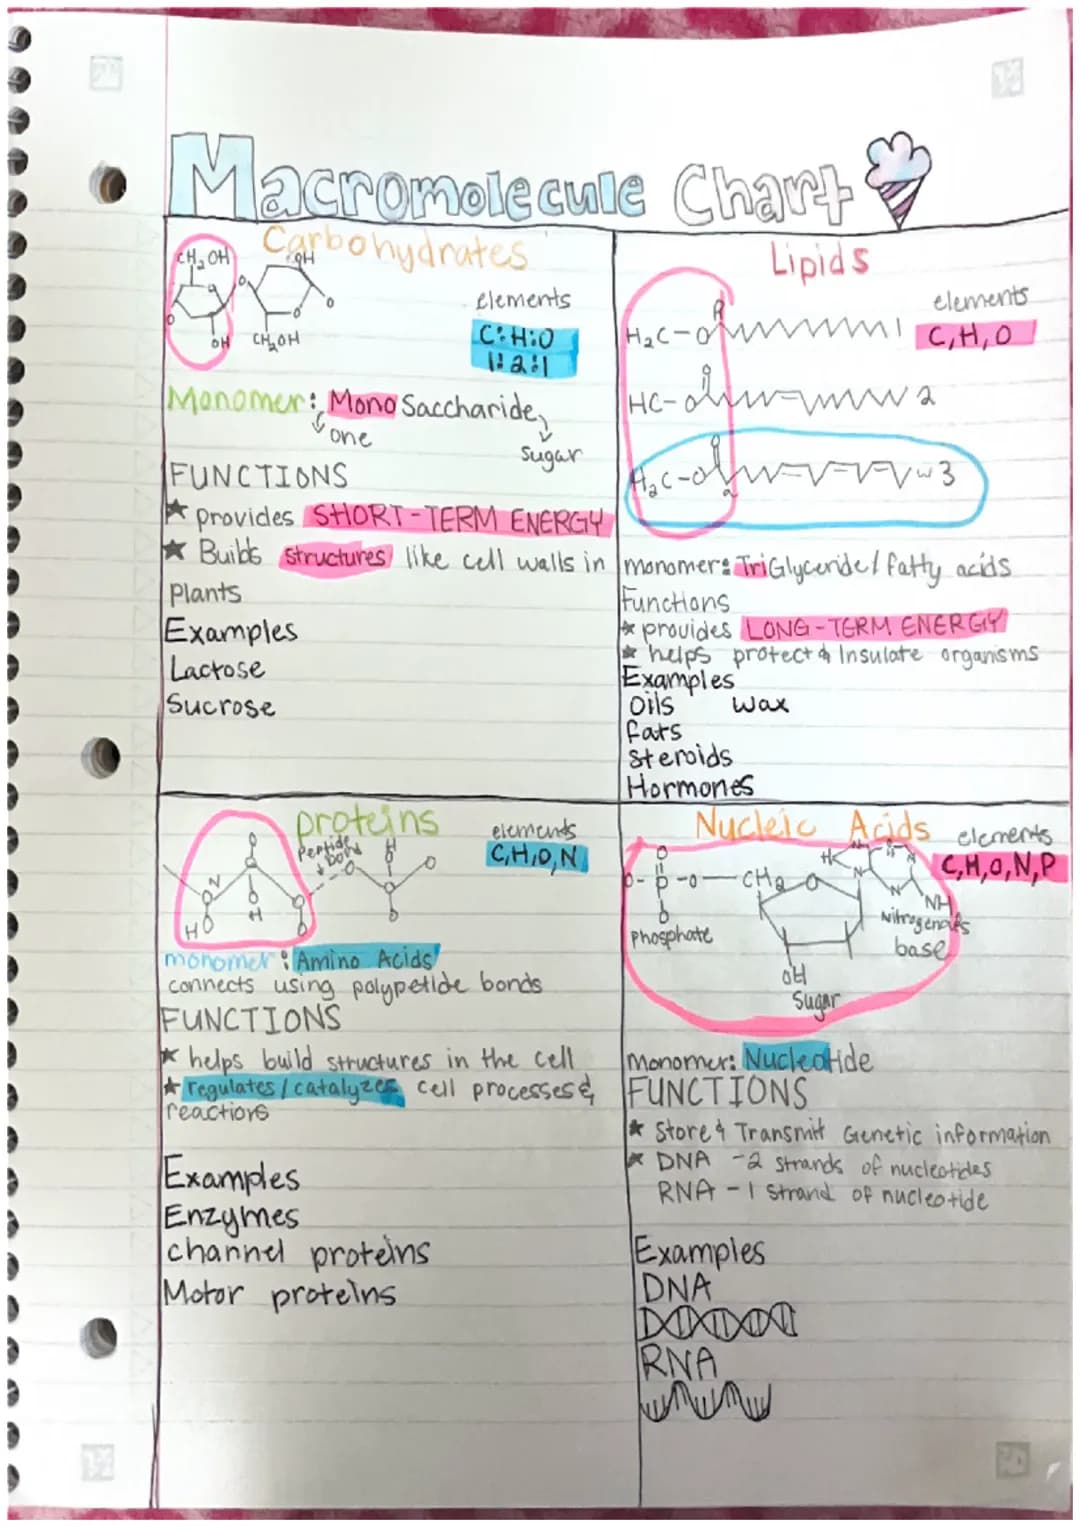 Macromolecule Chart
Carbohydrates
CH2OH
OH
O
O
O
O
OH
CH2OH
elements
C:H:O
1:2:1
Monomer: MonoSaccharide
one
Sugar
FUNCTIONS
★ provides SHORT-TERM ENERGY
★ Builds structures like cell walls in
Plants
Examples
Lactose
Sucrose
Lipids
elements
C,H,O
H2C-O
1
HC-O
2
H2C-O
3
monomer: TriGlyceride/fatty acids
Functions
★ provides LONG-TERM ENERGY
★ helps protect & Insulate organisms
Examples
Oils wax
fats
Steroids
Hormones
proteins
Peptide
bond
elements
C,H,O,N
N
H
H
monomer: Amino Acids
connects using polypetide bonds
FUNCTIONS
★ helps build structures in the cell
★ regulates/catalyzes cell processes &
reactions
Examples
Enzymes
channel proteins
Motor proteins
Nucleic Acids
elements
C,H,O,N,P
O
O-P-O-CH2
O
O
H
N
N
NH
Phosphate
Nitrogenous
base
OH
Sugar
monomer: Nucleotide
FUNCTIONS
★ Store & Transmit Genetic information
★ DNA -2 strands of nucleotides
RNA - 1 strand of nucleotide
Examples
DNA
RNA